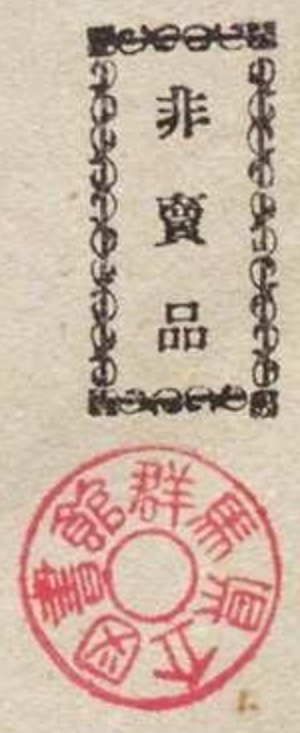 非賣品
群馬県立図書館